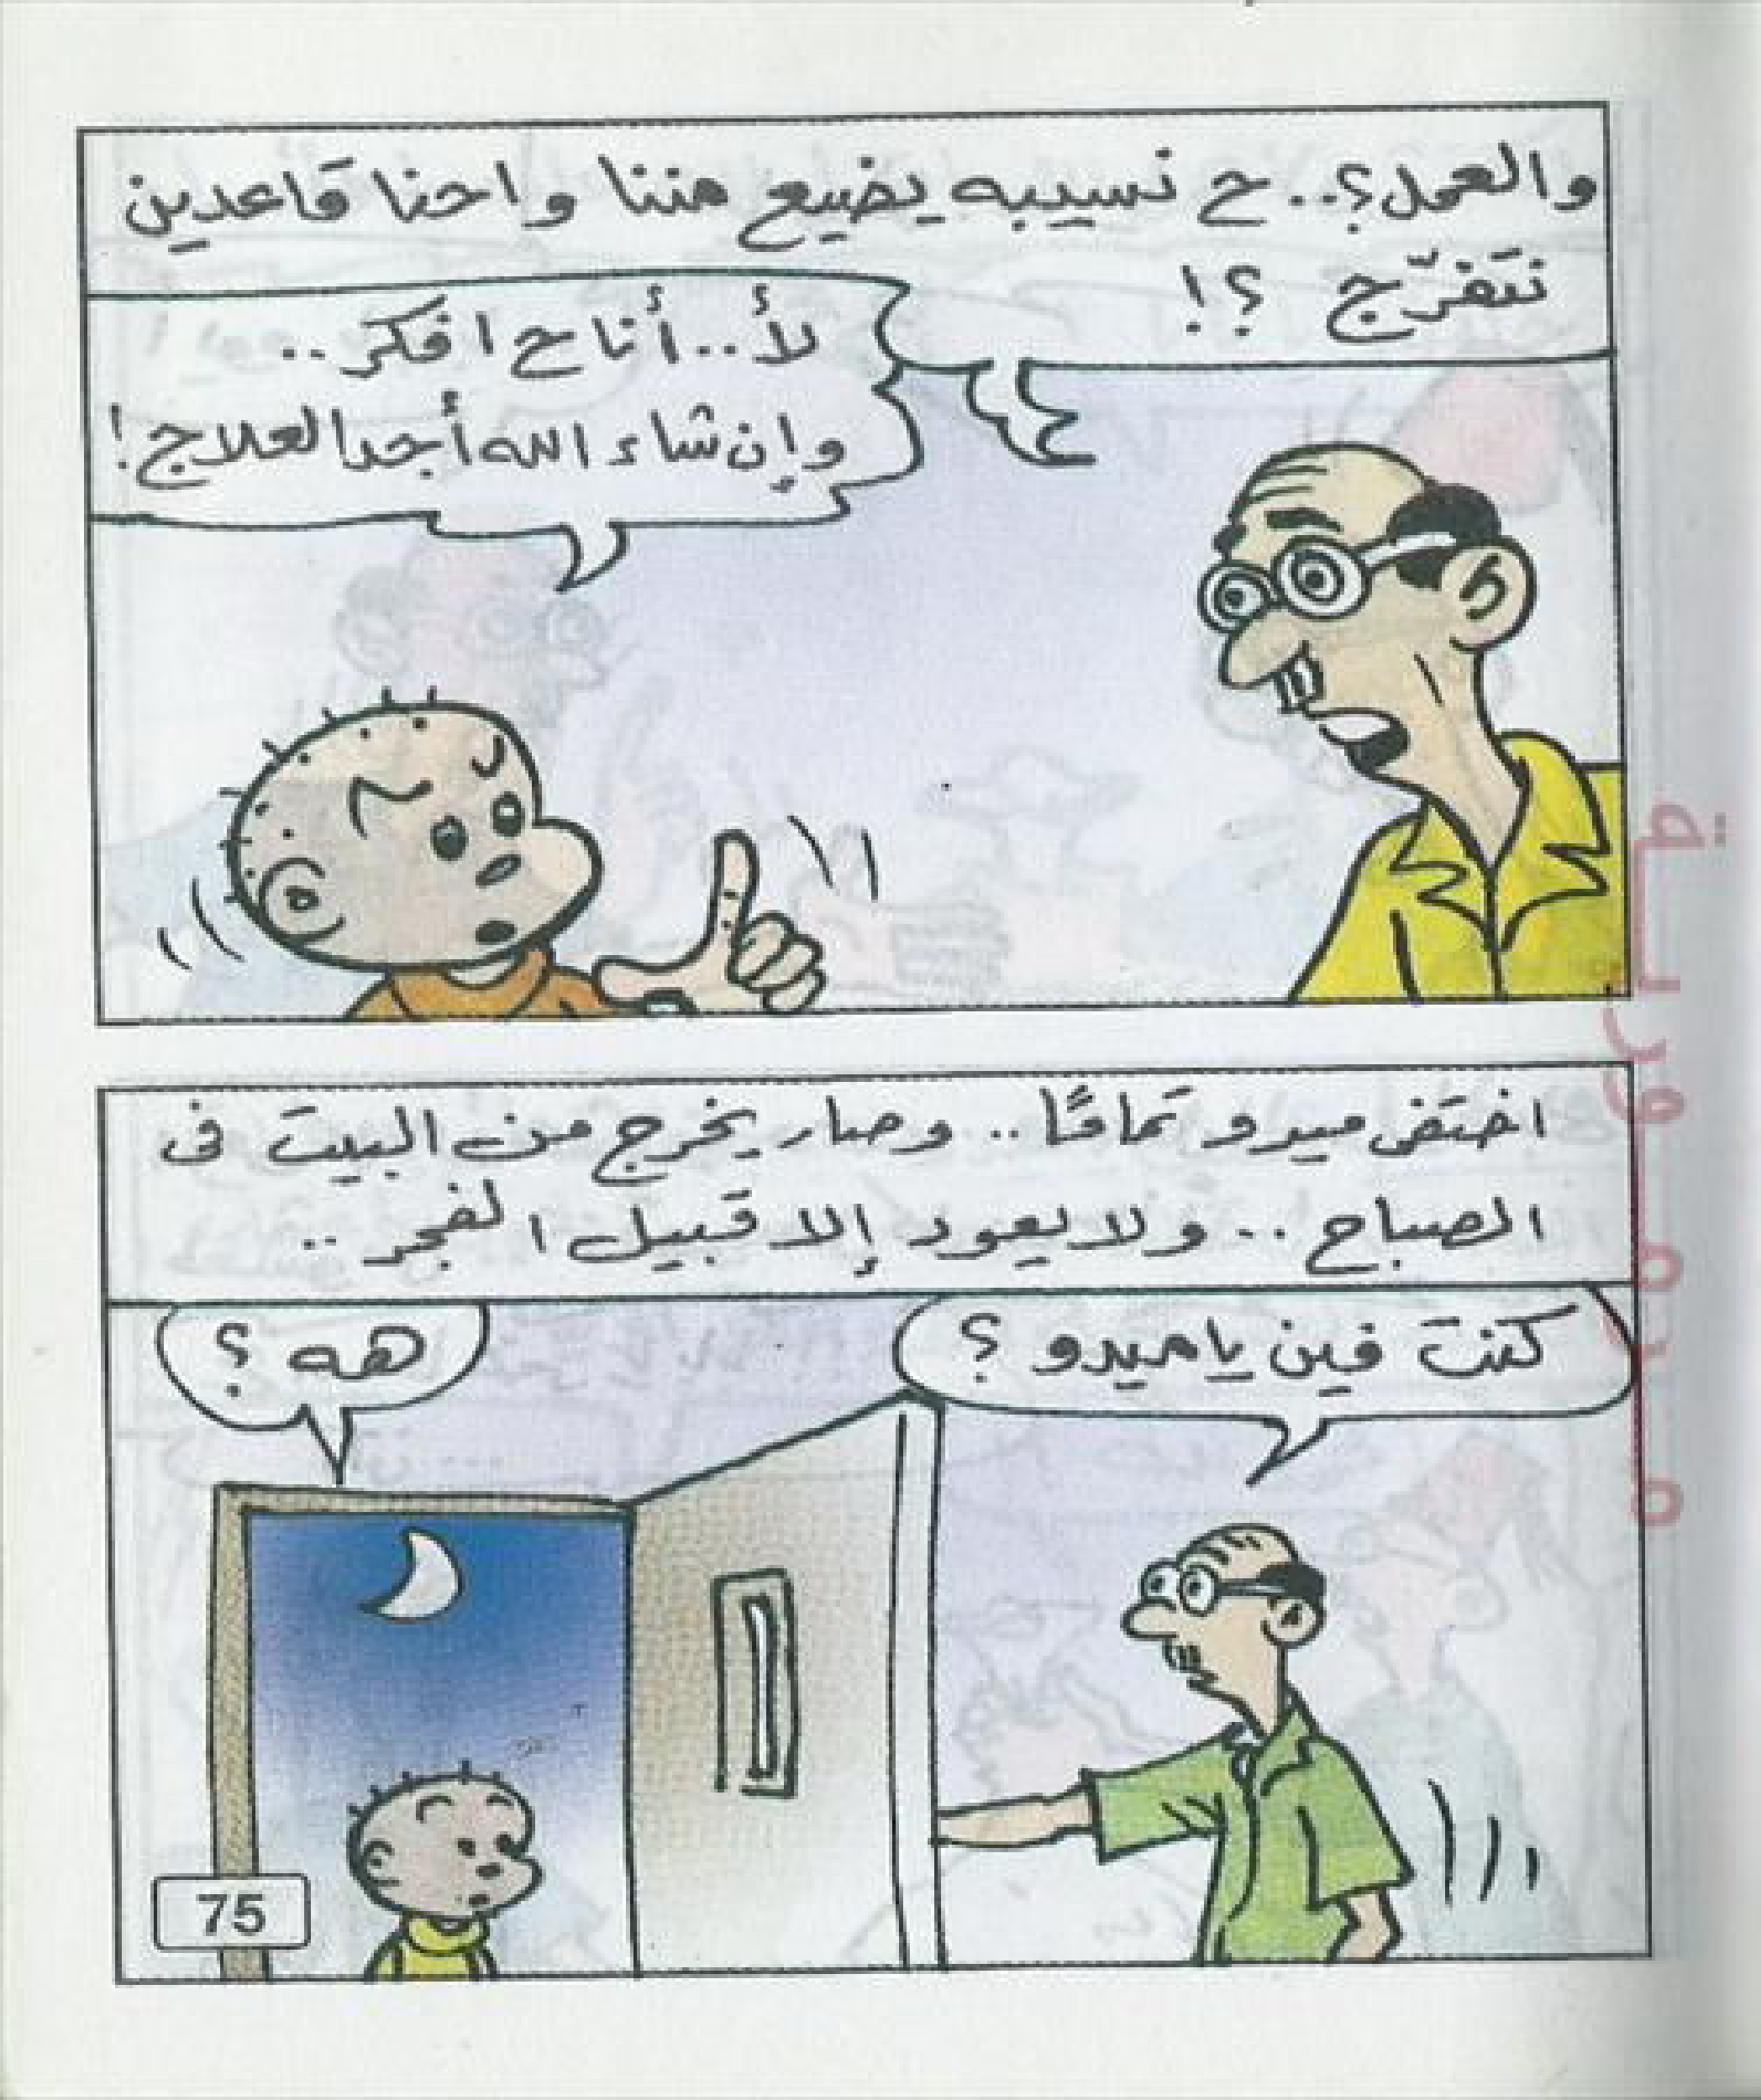 والعمل؟.. ح نسيبه يضيع مننا واحنا قاعدين
نتفرّج ؟!
لأ.. أنا ح افكر..
وإن شاء الله أجد العلاج!
اختفى ميدو تمامًا.. وصار يخرج من البيت فى
الصباح.. ولا يعود إلا قبيل الفجر..
كنت فين يا ميدو ؟
هه ؟
75